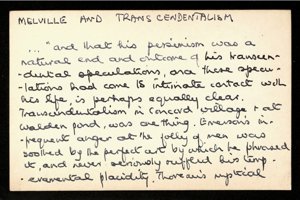 MELVILLE AND TRANSCENDENTALISM
... "and that his pessimism was a
natural end and outcome of his transcen-
-dental speculations, and these specu-
-lations had come to intimate contact with
his life, is perhaps equally clear.
Transcendentalism in Concord village, & at
Walden Pond, was one thing. Emerson's in-
-frequent anger at the folly of men was
soothed by the perfect art by which he phrased
it, and never seriously ruffled his temp-
-eramental placidity. Thoreau's mystical